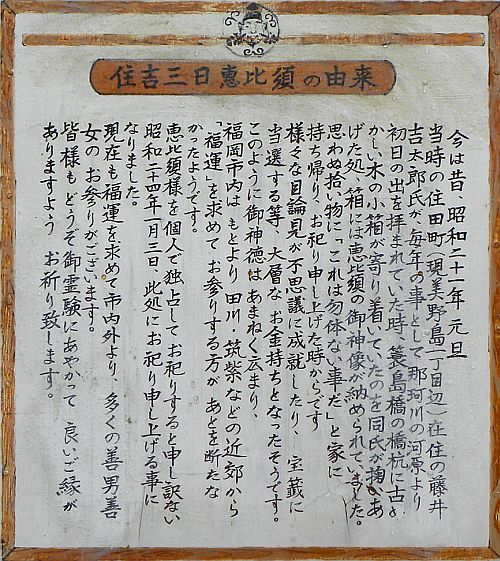 住吉三日恵比須の由来
今は昔、昭和二十一年元旦
当時の住田町(現美野島一丁目辺)在住の藤井
吉太郎氏が、毎年の事として那珂川の河原より
初日の出を拝まれていた時、簑島橋の橋杭に古め
かしい木の小箱が寄り着いていたのを同氏が掬いあ
げた処、箱には恵比須の御神像が納められていました。
思わぬ拾い物に「これは勿体ない事だ」と家に
持ち帰り、お祀り申し上げた時からです
様々な目論見が不思議に成就したり、宝籤に
当選する等、大層なお金持ちとなったそうです。
このように御神徳はあまねく広まり、
福岡市内はもとより田川・筑紫などの近郊から
「福運」を求めてお参りする方があとを断たな
かったようです。
恵比須様を個人で独占してお祀りすると申し訳ない
昭和二十四年一月三日、此処にお祀り申し上げる事に
なりました。
現在も福運を求めて市内外より、多くの善男善
女のお参りがございます。
皆様もどうぞ御霊験にあやかって 良いご縁が
ありますよう お祈り致します。